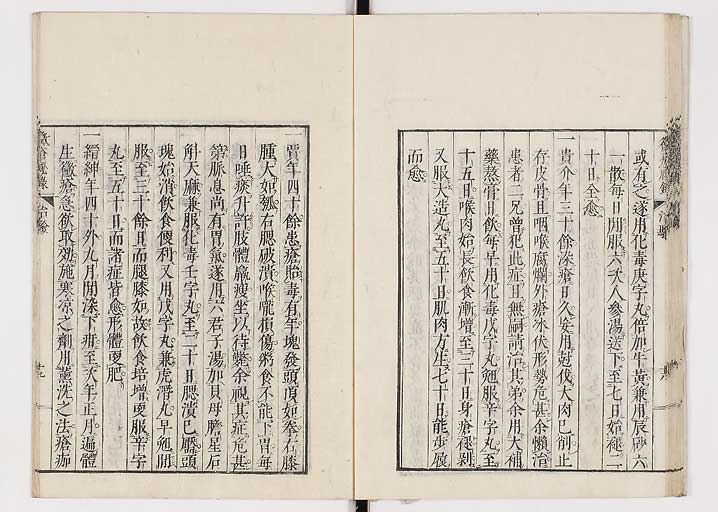 或有之遂用化毒庚字丸倍加牛黃兼用辰砂六
一散每日間服六次人參湯送下至七日始穩二
十日全愈
一貴介年三十餘染瘡日久妄用尅伐大肉已削止
存皮骨且咽喉腐爛外瘡冰伏形勢危甚余懶治
患者二兄曾犯此症且無嗣請治其弟余用大補
藥熬膏日飲每早用化毒戊字丸晚服辛字丸至
十五日喉肉始長飲食漸增至三十日身瘡褪剥
又服大造丸至五十日肌肉方生七十日能步履
而愈
一賈年四十餘患瘡貽毒有年塊發頭頂如拳右膝
腫大如瓠右腮破潰喉嚨損傷粥食不能下胃每
日唾痰升許肢體羸瘦坐以待斃余視其症危甚
第脈息尚有胃氣遂用六君子湯加貝母膽星石
斛天麻兼服化毒壬字丸至二十日腮潰已痂頭
塊始消飲食便利又用戊字丸兼虎潛丸早晚間
服至三十餘日而腿膝如故飲食培增更服辛字
丸至五十日而諸症皆愈形體更肥
一縉紳年四十外九月間染下疳至次年正月遍體
生黴瘡急欲取効施寒涼之劑用薰洗之法瘡痂
黴瘡秘錄
治驗